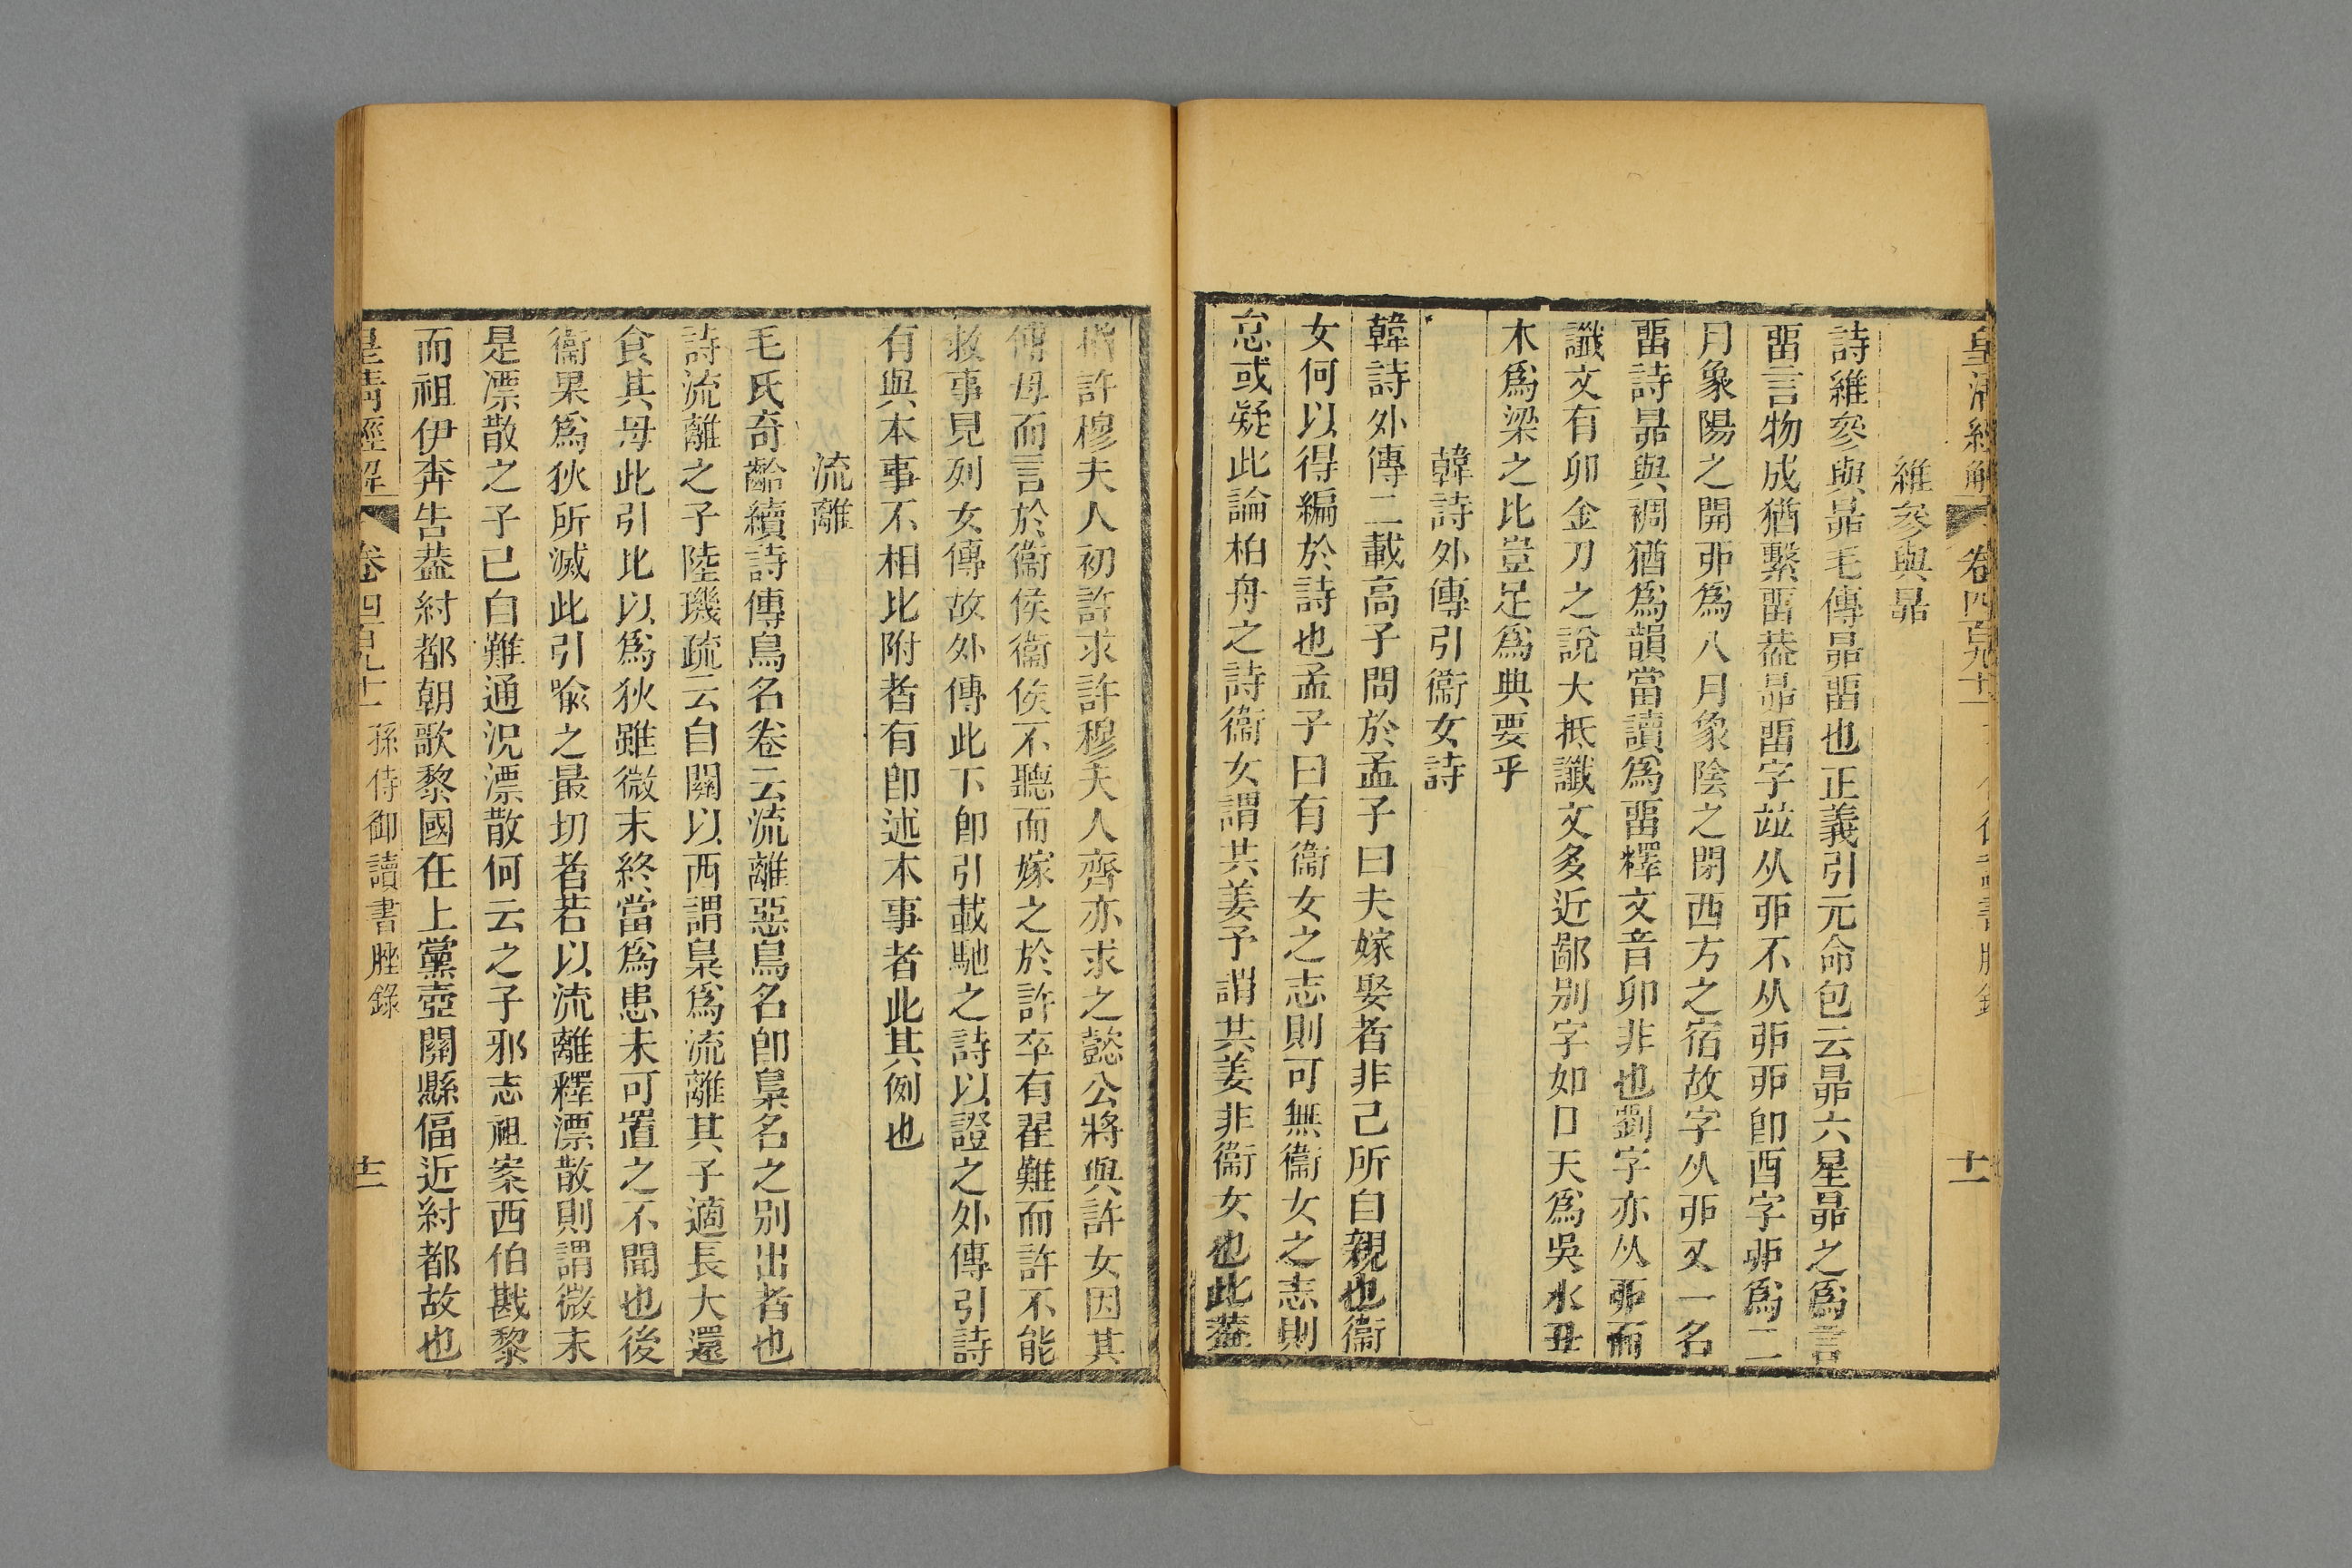 皇清經解 卷四百九十一 讀書脞錄 十二
維參與昴
詩維參與昴毛傳昴畱也正義引元命包云昴六星昴之爲言
畱言物成猶繫畱葢昴畱字竝从戼不从丣戼卽酉字丣爲二
月象陽之開戼爲八月象陰之閉西方之宿故字从戼又一名
畱詩昴與裯猶爲韻當讀爲畱釋文音卯非也劉字亦从戼而
讖文有卯金刀之說大抵讖文多近鄙别字如口天爲吳水丑
木爲梁之比豈足爲典要乎
韓詩外傳引衞女詩
韓詩外傳二載高子問於孟子曰夫嫁娶者非己所自親也衞
女何以得編於詩也孟子曰有衞女之志則可無衞女之志則
怠或疑此論柏舟之詩衞女謂共姜予謂共姜非衞女也此葢
指許穆夫人初許求許穆夫人齊亦求之懿公將與許女因其
傅母而言於衞侯衞侯不聽而嫁之於許卒有翟難而許不能
救事見列女傳故外傳此下卽引載馳之詩以證之外傳引詩
有與本事不相比附者有卽述本事者此其例也
流離
毛氏奇齡續詩傳鳥名卷云流離惡鳥名卽梟名之别出者也
詩流離之子陸璣疏云自關以西謂梟爲流離其子適長大還
食其母此引比以爲狄雖微末終當爲患未可置之不聞也後
衞果爲狄所滅此引喩之最切者若以流離釋漂散則謂微末
是漂散之子已自難通況漂散何云之子邪志祖案西伯戡黎
而祖伊奔告葢紂都朝歌黎國在上黨壺關縣偪近紂都故也
皇清經解 卷四百九十一 孫侍御讀書脞錄 十三